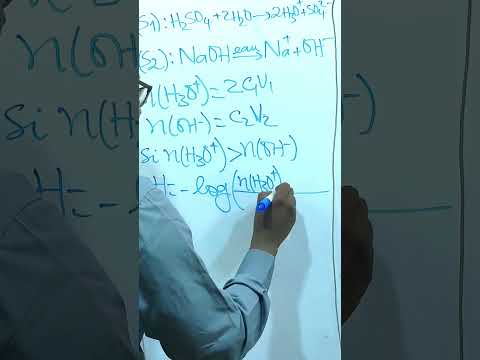 S1): H₂SO₄ + 2H₂O → 2H₃O⁺ + SO₄²⁻
(S2): NaOH eau→ Na⁺ + OH⁻
n(H₃O⁺) = 2C₁V₁
n(OH⁻) = C₂V₂
Si n(H₃O⁺) > n(OH⁻)
H = - log(n(H₃O⁺)
Si n(H